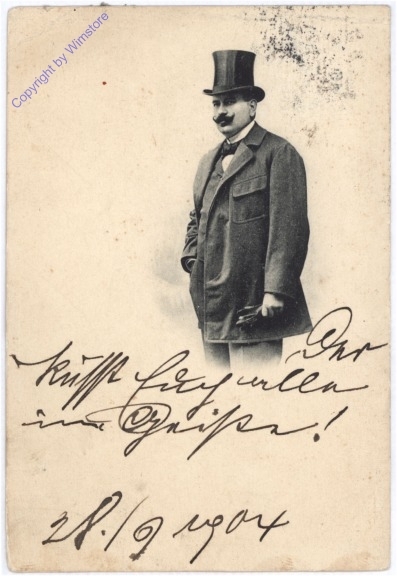 Copyright by Wimstore
Der
küsst Euch alle
im Geiste!
28./9 1904